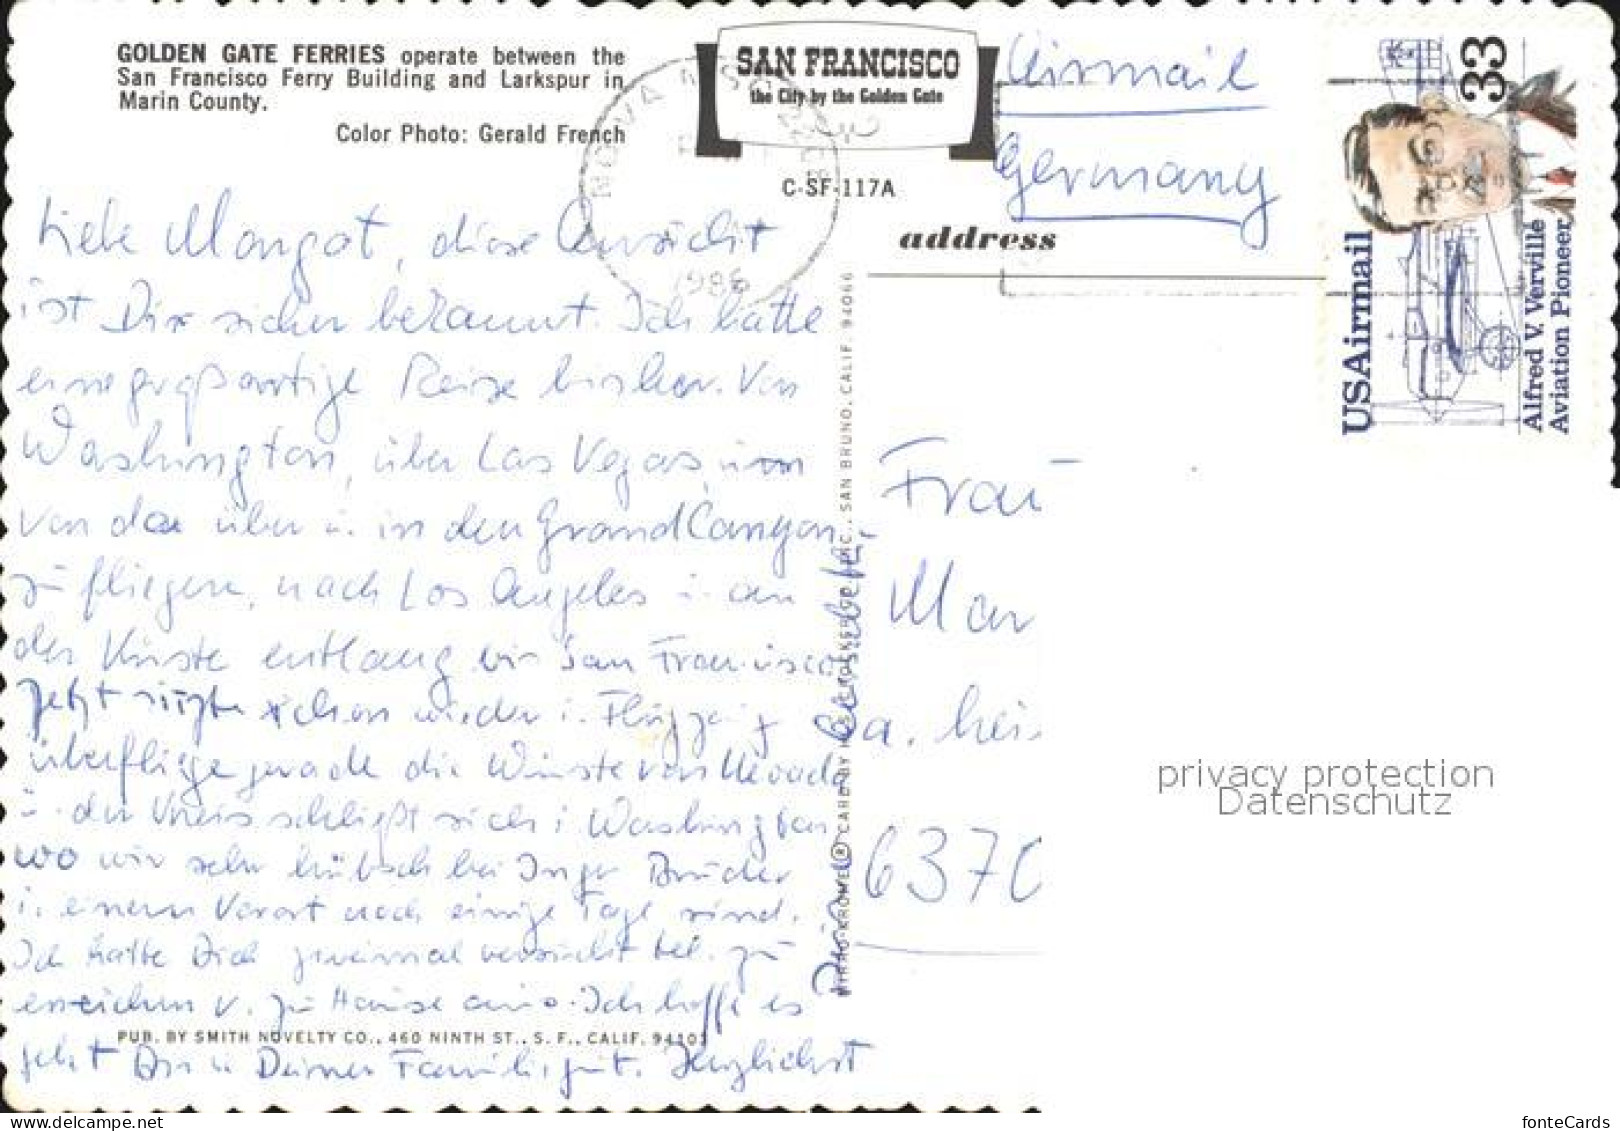 GOLDEN GATE FERRIES operate between the
San Francisco Ferry Building and Larkspur in
Marin County.
Color Photo: Gerald French
SAN FRANCISCO
the City by the Golden Gate
C-SF-117A
address
Airmail
Germany
1986
33
USAirmail
Alfred V. Verville
Aviation Pioneer
Liebe Margot, diese Ansicht
ist Dir sicher bekannt. Ich hatte
eine großartige Reise bisher. Von
Washington, über Las Vegas, um
von da über u. in den Grand Canyon
zu fliegen, nach Los Angeles u. an
der Küste entlang bis San Francisco
Jetzt sitze schon wieder i. Flugzeug
überfliege gerade die Wüste von Nevada
u. der Kreis schließt sich i. Washington
wo wir sehr hübsch bei Inge Bruder
i. einem Vorort noch einige Tage sind.
Ich hatte Dich zweimal versucht tel. zu
erreichen v. zu Hause aus. Ich hoffe es
geht Dir u. Deiner Familie gut. Herzlichst
Deine Elisabeth
PUB. BY SMITH NOVELTY CO., 460 NINTH ST., S. F., CALIF. 94103
CARD BY H.S. CROCKER CO., INC., SAN BRUNO, CALIF. 94066
Frau
Mar
6370
privacy protection
Datenschutz
delcampe.net
fonteCards